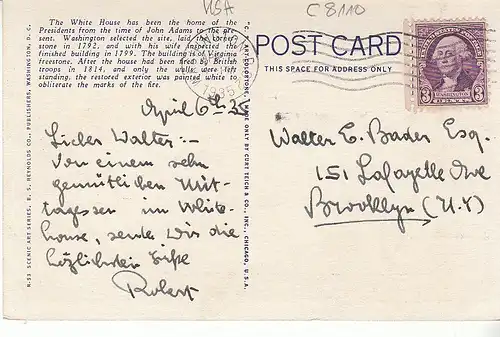 USA
C 8110
The White House has been the home of the
Presidents from the time of John Adams to the pre-
sent. Washington selected the site, laid the corner-
stone in 1792, and with his wife inspected the
finished building in 1799. The building is of Virginia
freestone. After the house had been fired by British
troops in 1814, and only the walls were left
standing, the restored exterior was painted white to
obliterate the marks of the fire.
POST CARD
THIS SPACE FOR ADDRESS ONLY
UNITED STATES POSTAGE
3 WASHINGTON 3
1935
April 6th 35
Lieber Walter:-
Von einem sehr
gemütlichen Mit-
tagessen im White
house, sendet Dir die
herzlichsten Grüße
Robert
Walter E. Bader Esq.
151 Lafayette Ave
Brooklyn (N.Y)
R-53 SCENIC ART SERIES, B. S. REYNOLDS CO., PUBLISHERS, WASHINGTON, D. C.
"C. T. ART-COLORTONE" MADE ONLY BY CURT TEICH & CO., INC., CHICAGO, U.S.A.